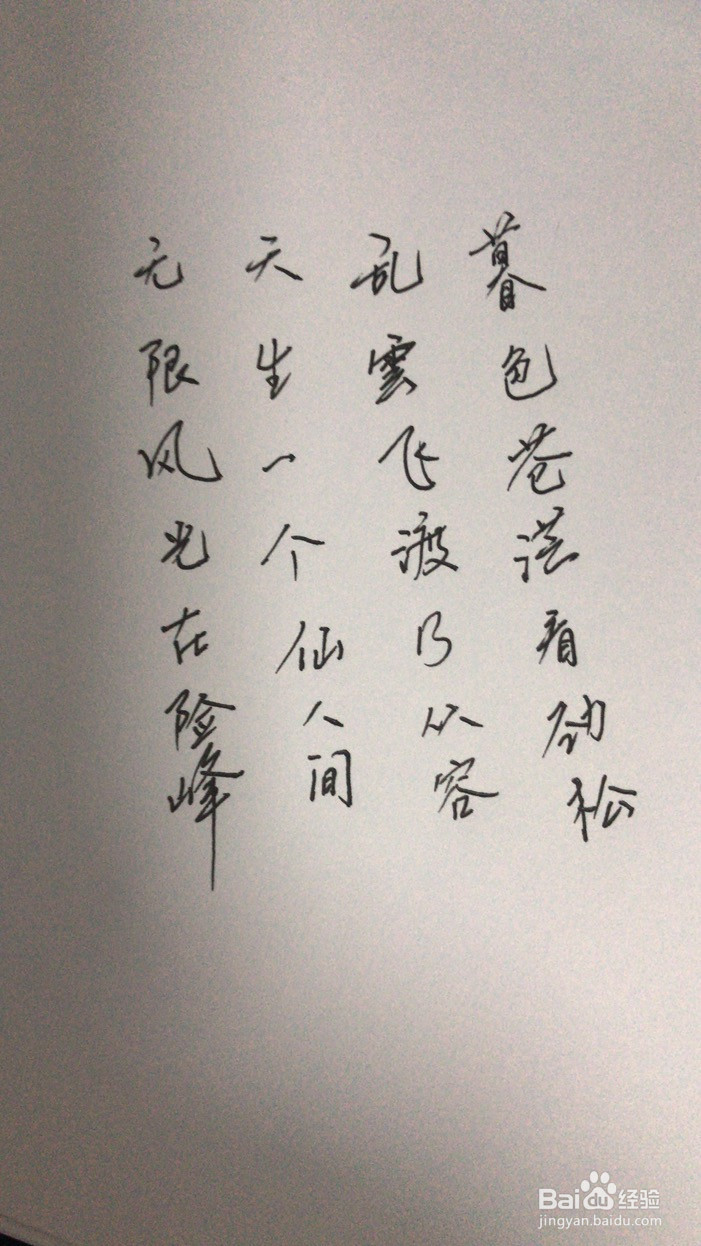 暮色苍茫看劲松
乱雲飞渡仍从容
天生一个仙人间
无限风光在险峰
Baidu经验
jingyan.baidu.com